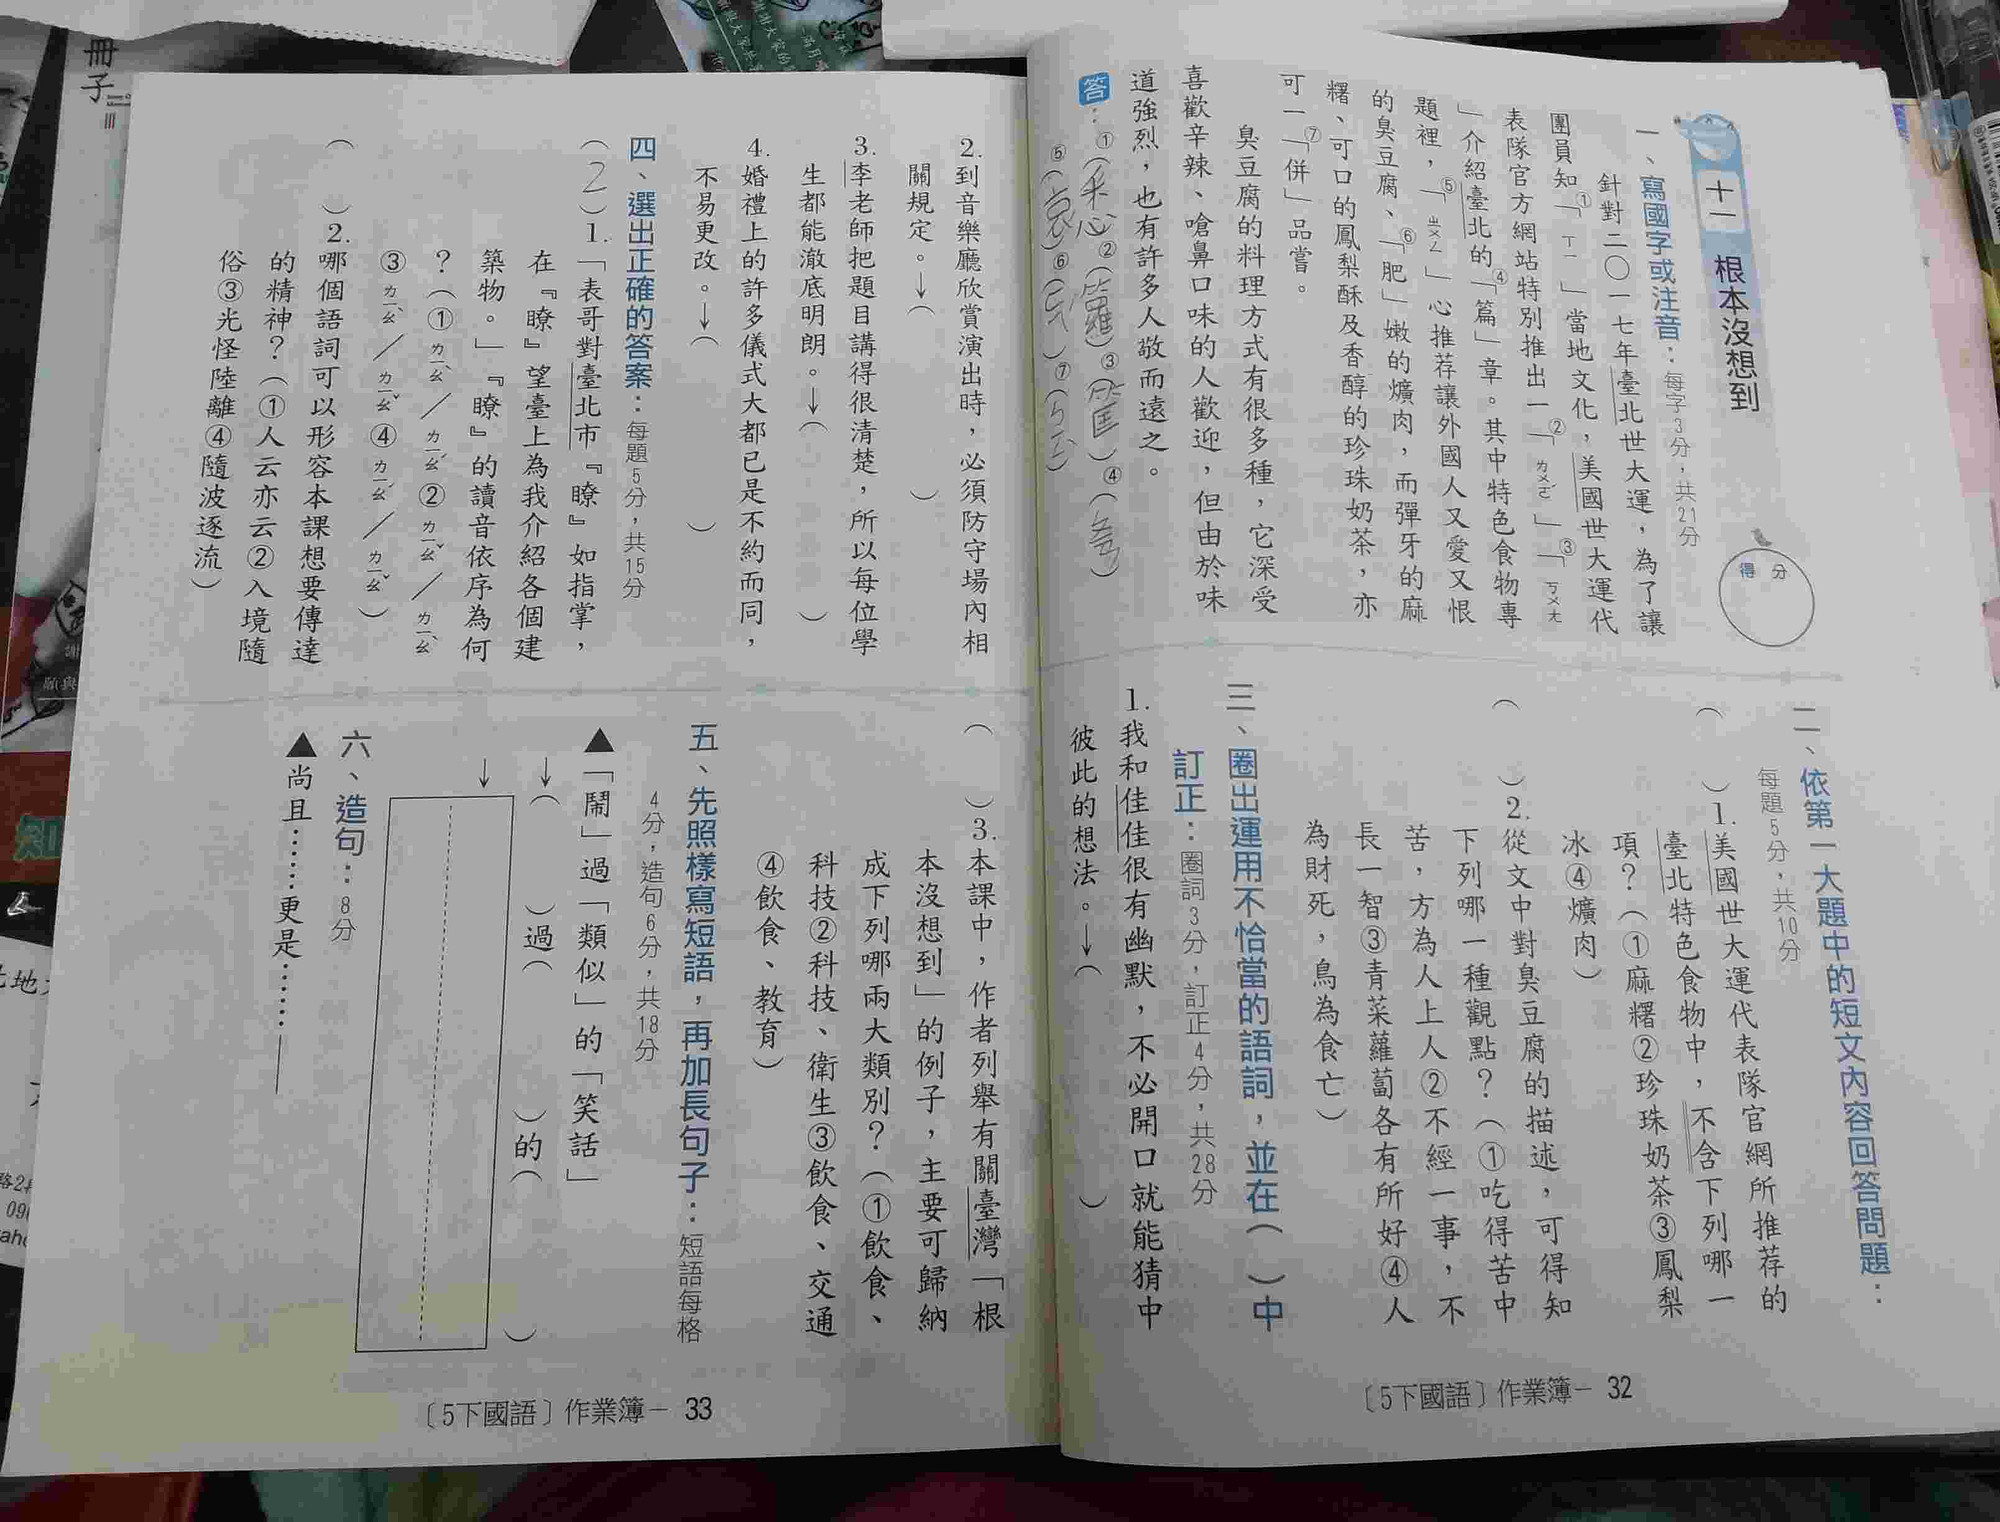 十一 根本沒想到
得分
一、寫國字或注音：每字3分，共21分
針對二〇一七年臺北世大運，為了讓
團員知①「ㄒㄧ」當地文化，美國世大運代
表隊官方網站特別推出一②「ㄌㄨㄛˊ」③「ㄎㄨㄤ
」介紹臺北的④「篇」章。其中特色食物專
題裡，⑤「ㄓㄨㄥ」心推荐讓外國人又愛又恨
的臭豆腐、⑥「肥」嫩的爌肉，而彈牙的麻
糬、可口的鳳梨酥及香醇的珍珠奶茶，亦
可一⑦「併」品嘗。
臭豆腐的料理方式有很多種，它深受
喜歡辛辣、嗆鼻口味的人歡迎，但由於味
道強烈，也有許多人敬而遠之。
答：①（悉）②（籮）③（筐）④（
⑤（衷）⑥（
⑦（
二、依第一大題中的短文內容回答問題：
每題5分，共10分
（ ）1.美國世大運代表隊官網所推荐的
臺北特色食物中，不含下列哪一
項？（①麻糬②珍珠奶茶③鳳梨
冰④爌肉）
（ ）2.從文中對臭豆腐的描述，可得知
下列哪一種觀點？（①吃得苦中
苦，方為人上人②不經一事，不
長一智③青菜蘿蔔各有所好④人
為財死，鳥為食亡）
三、圈出運用不恰當的語詞，並在（ ）中
訂正：圈詞3分，訂正4分，共28分
1.我和佳佳很有幽默，不必開口就能猜中
彼此的想法。→（ ）
〔5下國語〕作業簿－32
2.到音樂廳欣賞演出時，必須防守場內相
關規定。→（ ）
3.李老師把題目講得很清楚，所以每位學
生都能澈底明朗。→（ ）
4.婚禮上的許多儀式大都已是不約而同，
不易更改。→（ ）
四、選出正確的答案：每題5分，共15分
（2）1.「表哥對臺北市『瞭』如指掌，
在『瞭』望臺上為我介紹各個建
築物。」『瞭』的讀音依序為何
？（①ㄌㄧㄠˋ／ㄌㄧㄠˊ②ㄌㄧㄠˇ／ㄌㄧㄠˋ
③ㄌㄧㄠˋ／ㄌㄧㄠˇ④ㄌㄧㄠˊ／ㄌㄧㄠˇ）
（ ）2.哪個語詞可以形容本課想要傳達
的精神？（①人云亦云②入境隨
俗③光怪陸離④隨波逐流）
（ ）3.本課中，作者列舉有關臺灣「根
本沒想到」的例子，主要可歸納
成下列哪兩大類別？（①飲食、
科技②科技、衛生③飲食、交通
④飲食、教育）
五、先照樣寫短語，再加長句子：短語每格
4分，造句6分，共18分
▲「鬧」過「類似」的「笑話」
→（ ）過（ ）的（ ）
→
六、造句：8分
▲尚且……更是……
〔5下國語〕作業簿－33
冊子